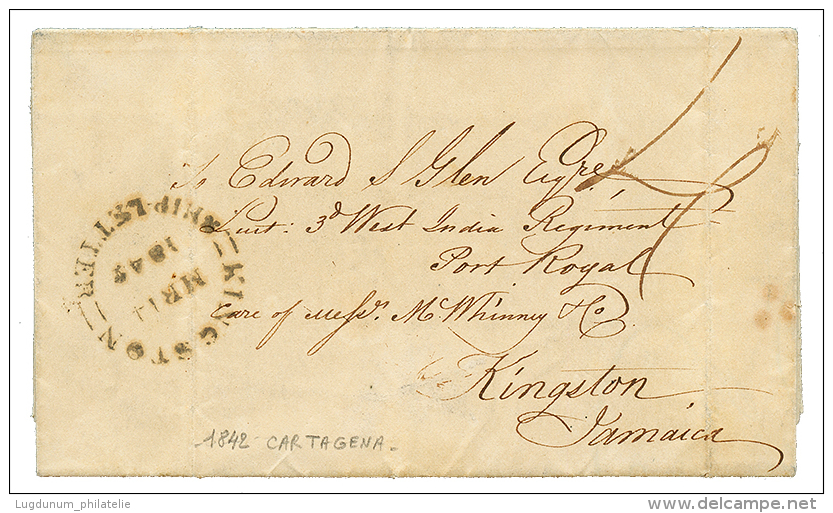 To Edward S Glen Esqre
Lieut: 3d West India Regiment
Port Royal
Care of Messrs. McWhinney & Co
Kingston
Jamaica
KINGSTON
SHIP LETTER
MR 1
184
1842 CARTAGENA_
Lugdunum_philatelie
delcampe.net